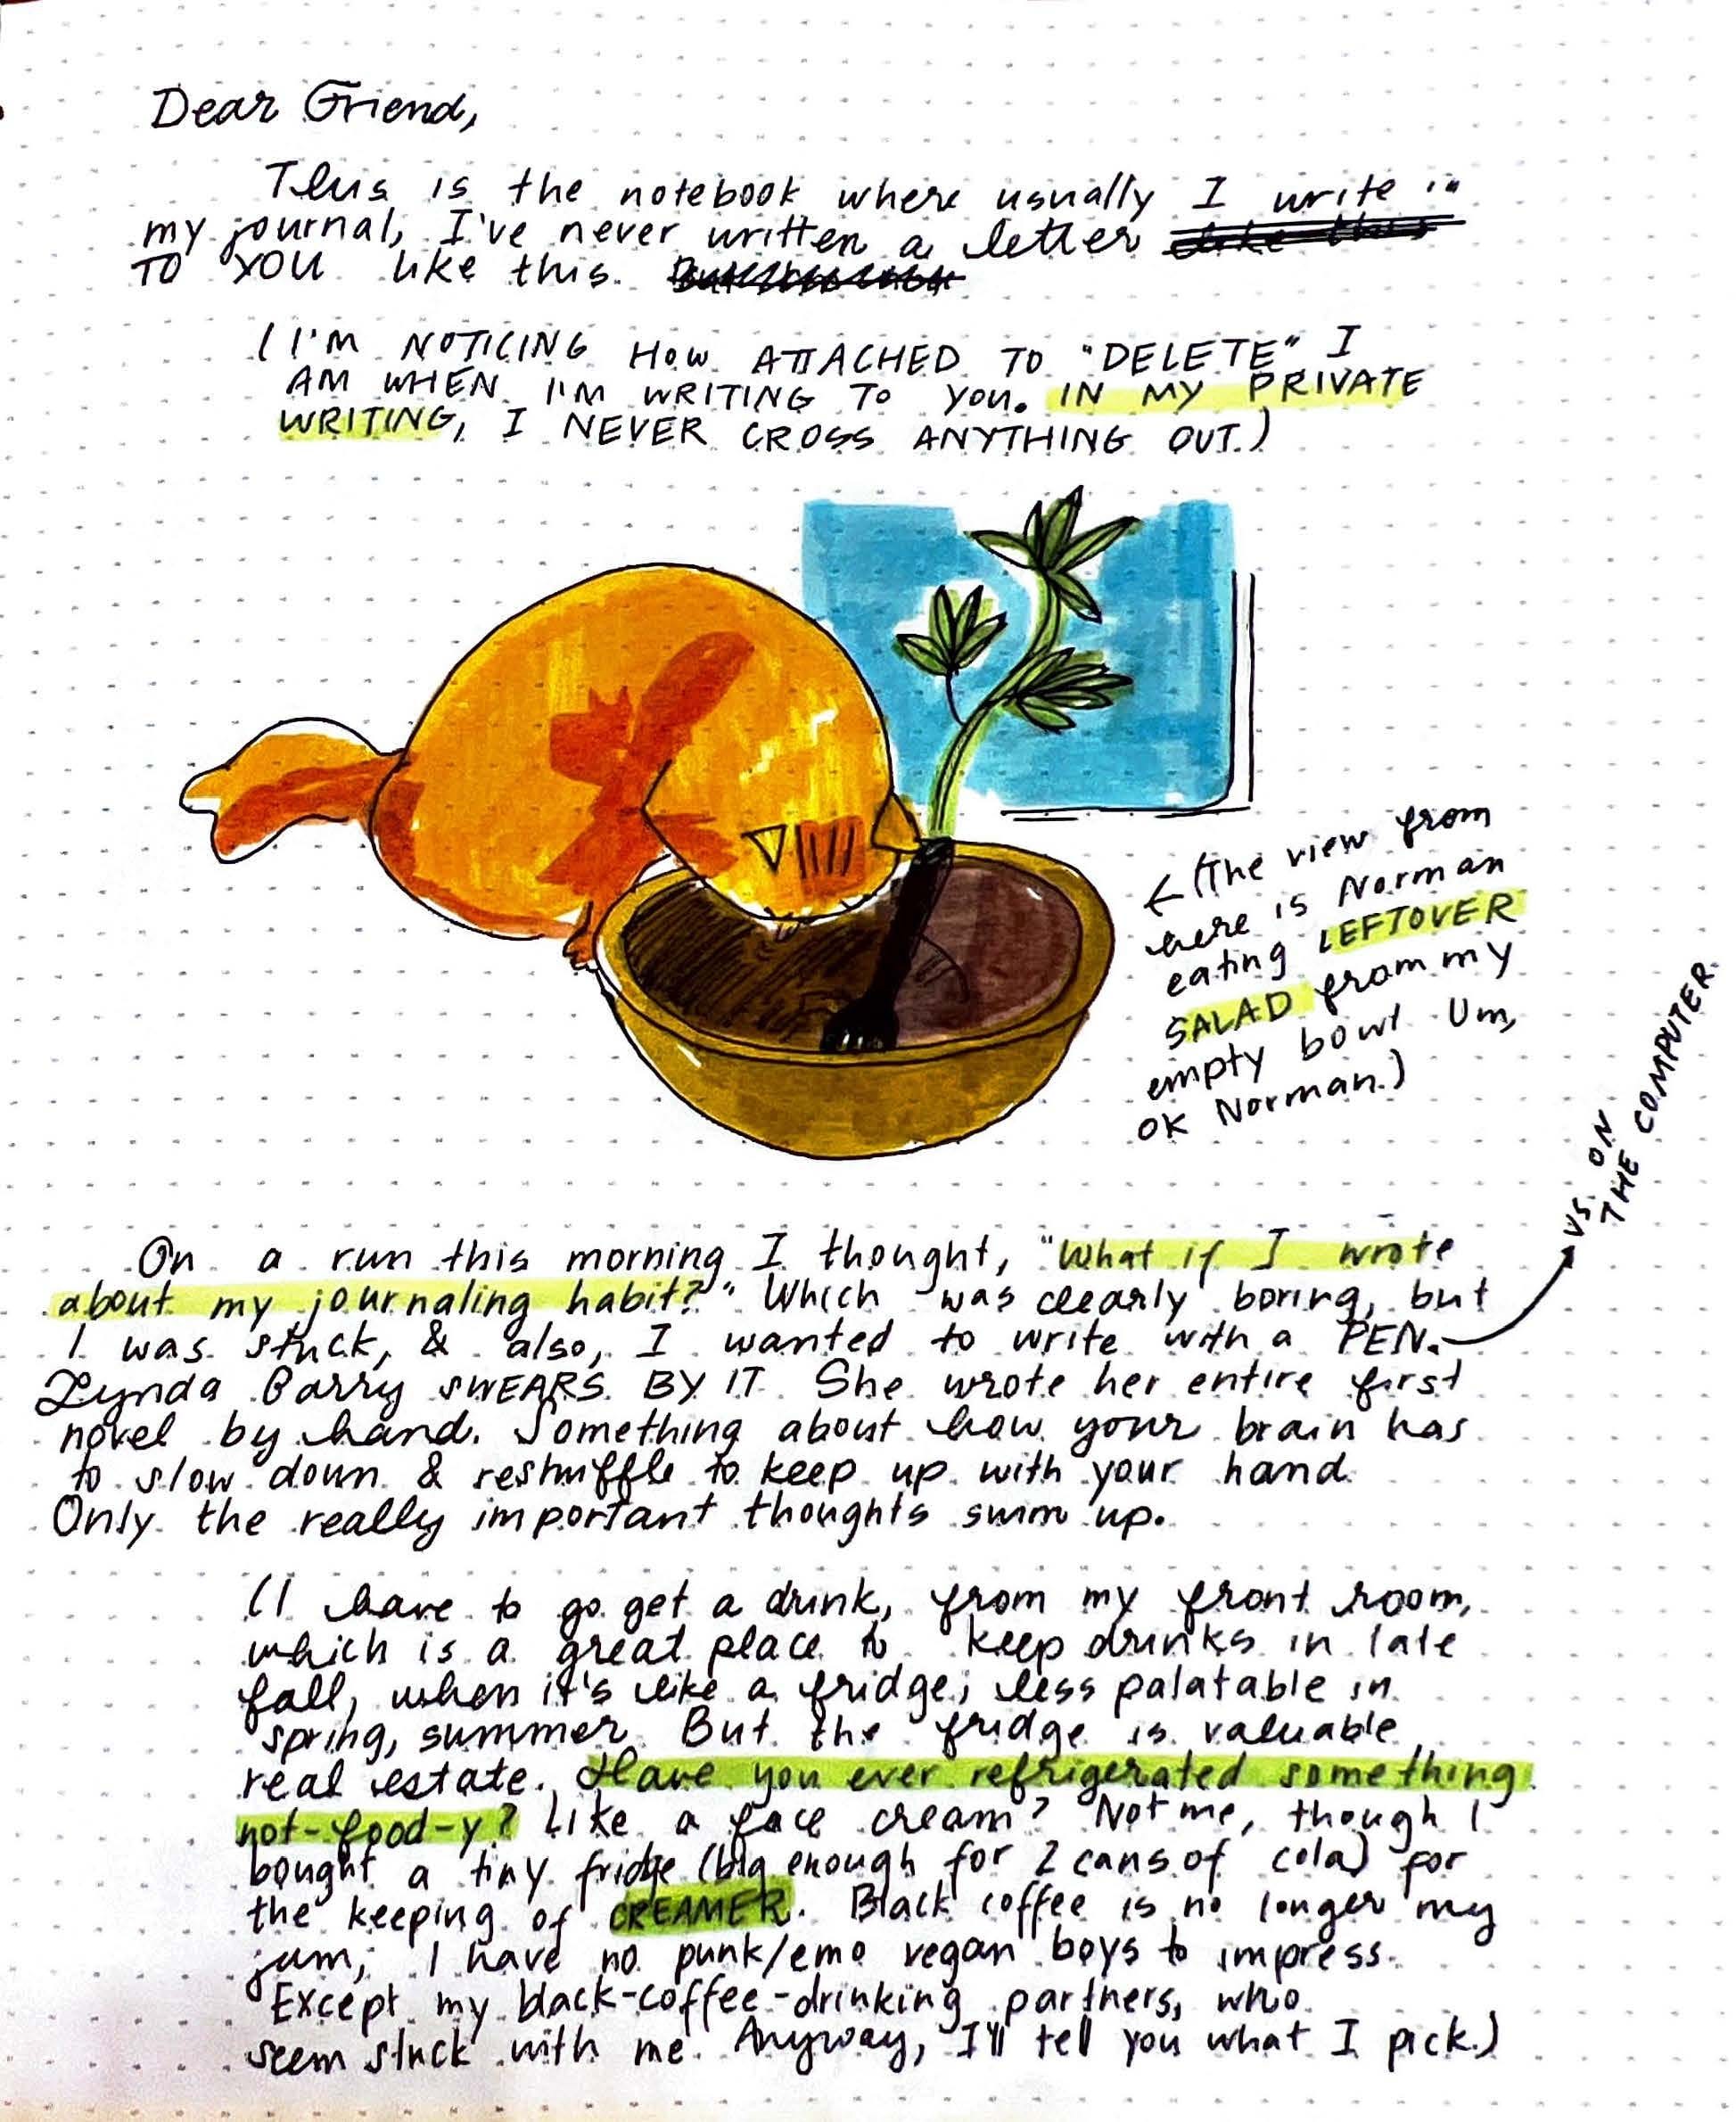 Dear Friend,
This is the notebook where usually I write in
my journal, I've never written a letter like this
TO YOU like this.
(I'M NOTICING HOW ATTACHED TO "DELETE" I
AM WHEN I'M WRITING TO YOU. IN MY PRIVATE
WRITING, I NEVER CROSS ANYTHING OUT.)
← (The view from
here is Norman
eating LEFTOVER
SALAD from my
empty bowl. Um,
OK Norman.)
On a run this morning I thought, "What if I wrote
about my journaling habit?" Which was clearly boring, but
I was stuck, & also, I wanted to write with a PEN.
VS. ON
THE COMPUTER.
Lynda Barry SWEARS BY IT. She wrote her entire first
novel by hand. Something about how your brain has
to slow down & reshuffle to keep up with your hand.
Only the really important thoughts swim up.
(I have to go get a drink, from my front room,
which is a great place to keep drinks in late
fall, when it's like a fridge; less palatable in
spring, summer. But the fridge is valuable
real estate. Have you ever refrigerated something
not-food-y? Like a face cream? Not me, though I
bought a tiny fridge (big enough for 2 cans of cola) for
the keeping of CREAMER. Black coffee is no longer my
jam; I have no punk/emo vegan boys to impress.
Except my black-coffee-drinking partners, who
seem stuck with me. Anyway, I'll tell you what I pick.)